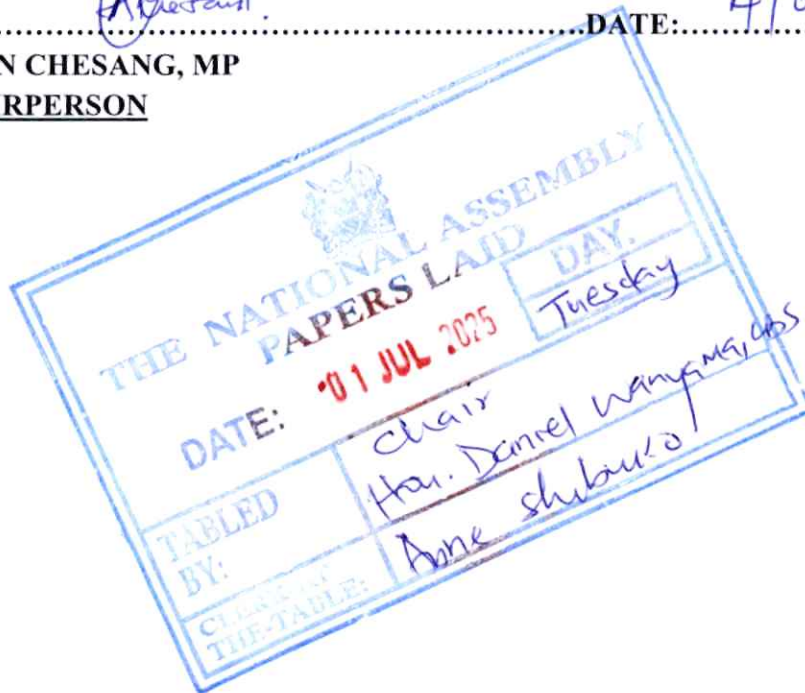 DATE:
N CHESANG, MP
RPERSON
THE NATIONAL ASSEMBLY
PAPERS LAID
DATE: 01 JUL 2025
DAY.
Tuesday
TABLED
BY:
Chair
Hon. Daniel Wanyama, CBS
CLERK AT
THE-TABLE:
Anne Shibuko